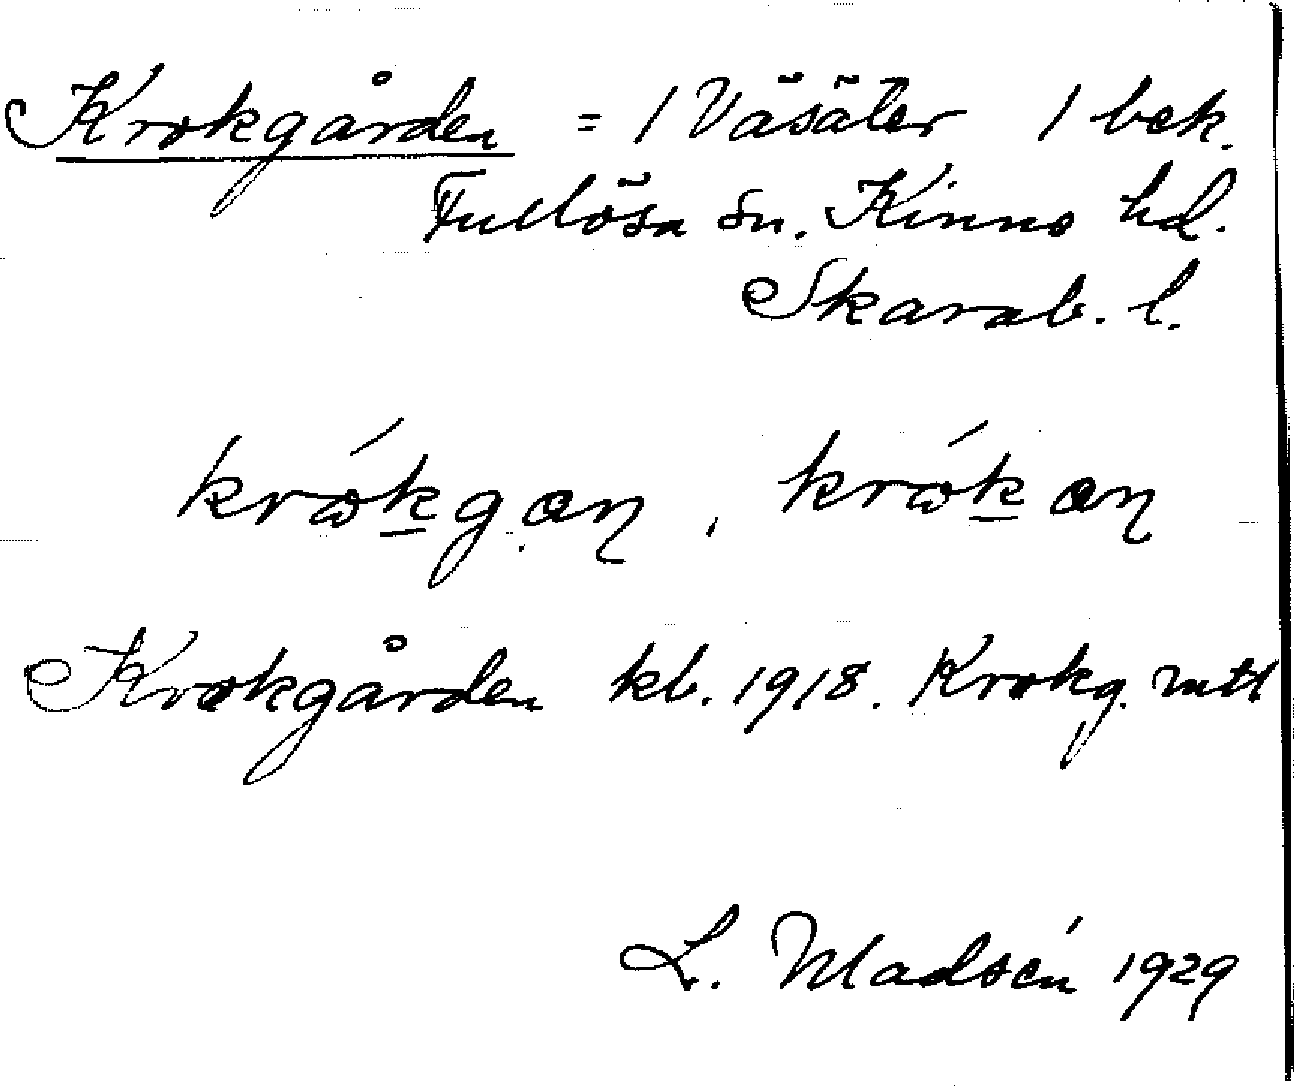 Krokgården = 1 Väsäter 1 bek.
Fullösa sn. Kinne hd.
Skarab. l.
krώkgan, krώkan
Krokgården kb. 1918. Krokg. mtl
L. Madsén 1929